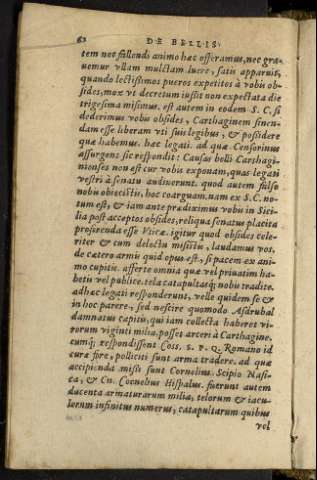 62 DE BELLIS
tem nec fallendi animo hæc offeramus, nec gra-
uemur vllam mulctam luere, satis apparuit,
quando lectissimos pueros expetitos à vobis ob-
sides, mox vt decretum iussit non expectata die
trigesima misimus. est autem in eodem S.C. si
dederimus vobis obsides, Carthaginem sinen-
dam esse liberam vti suis legibus, & possidere
quæ habemus. hæc legati. ad quæ Censorinus
assurgens sic respondit: Causas belli Carthagi-
nienses non est cur vobis exponam, quas legati
vestri à senatu audiuerunt. quod autem falso
nobis obiecistis, hoc coarguam. nam ex S.C. no-
tum est, & iam ante prædiximus vobis in Sici-
lia post acceptos obsides, reliqua senatus placita
proferenda esse Vticæ. igitur quod obsides cele-
riter & cum delectu misistis, laudamus vos.
de cætero armis quid opus est, si pacem ex ani-
mo cupitis. afferte omnia quæ vel priuatim ha-
betis vel publice. tela catapultasq; nobis tradite.
ad hæc legati responderunt, velle quidem se &
in hoc parere, sed nescire quomodo Asdrubal
damnatus capitis, qui iam collecta haberet vi-
rorum viginti milia, posset arceri à Carthagine.
cumq; respondissent Coss. S. P. Q. Romano id
curæ fore, polliciti sunt arma tradere. ad quæ
accipienda missi sunt Cornelius Scipio Nasi-
ca, & Cn. Cornelius Hispalus. fuerunt autem
ducenta armaturarum milia, telorum & iacu-
lorum infinitus numerus, catapultarum quibus
vel